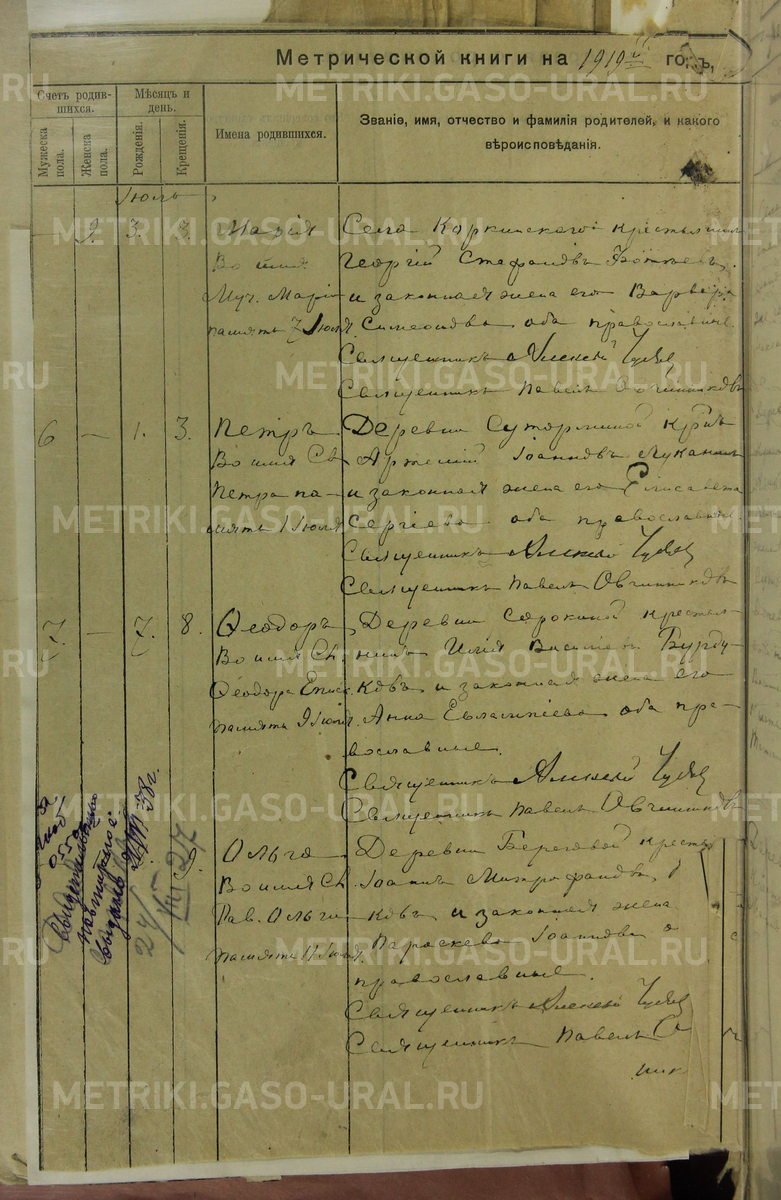 Метрической книги на 1919й годъ,
Счетъ родившихся.
Мужеска пола.
Женска пола.
Мѣсяцъ и день.
Рожденія.
Крещенія.
Имена родившихся.
Званіе, имя, отчество и фамилія родителей, и какого вѣроисповѣданія.
Июль
— 9. 3. 3. Марія
Во имя
Муч. Маріи
память 7 Іюля.
Села Коркинского крестьянинъ
Георгій Стефановъ
и законная жена его Варвара
Симеонова оба православные.
Священникъ Алексій
Священникъ Павелъ Овчинниковъ
6 — 1. 3. Петръ.
Во имя Св.
Петра па-
мять 1 Іюля
Деревни
Артемій Іоанновъ
и законная жена его Елисавета
Сергіева оба православные.
Священникъ Алексій
Священникъ Павелъ Овчинниковъ
7. — 7. 8. Ѳеодоръ
Во имя Св.
Ѳеодора Епис.
память 9 Іюля.
Деревни Сорокиной крестья-
нинъ Илія Василіевъ Бурду-
ковъ и законная жена его
Анна Евлампіева оба пра-
вославные.
Священникъ Алексій
Священникъ Павелъ Овчинниковъ
38г.
Ольга
Во имя Св.
Рав. Ольги
память 11 Іюля.
Деревни Береговой кресть
Іоаннъ Митрофановъ
ковъ и законная жена
Параскева Іоаннова о
православные.
Священникъ Алексій
Священникъ Павелъ О
ник
METRIKI.GASO-URAL.RU